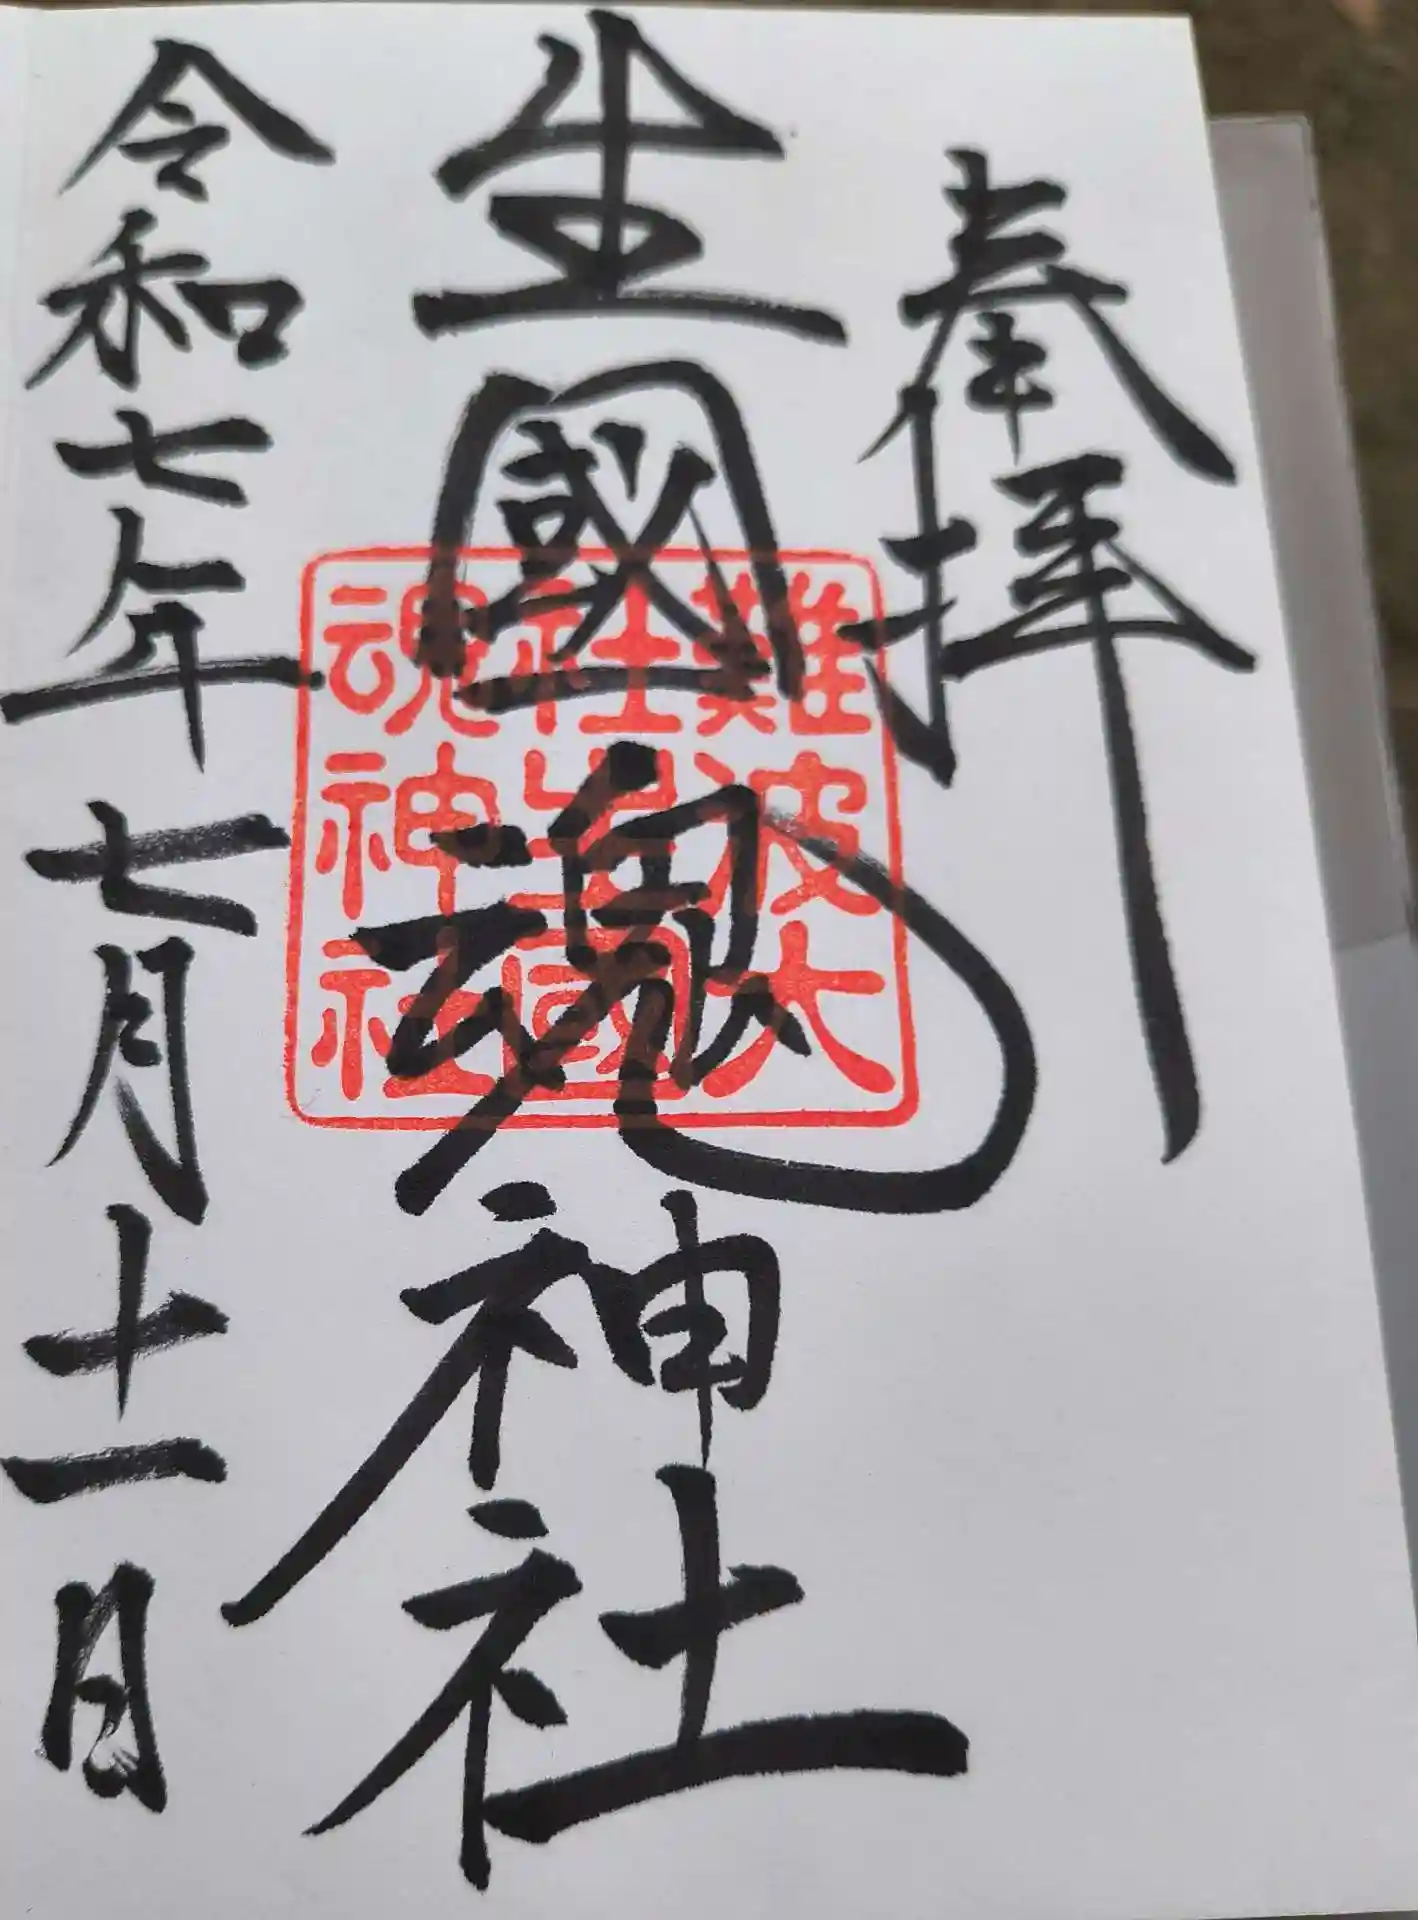 奉拝
生國魂神社
難波大
社生國
魂神社
令和七年七月十一日